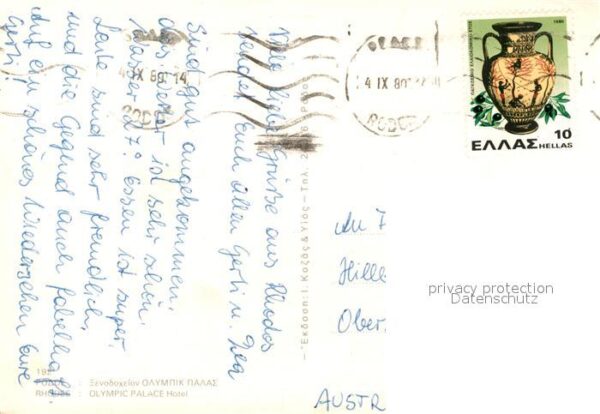 Viele liebe Grüße aus Rhodos
sendet Euch allen Gerti u.
Sind gut angekommen.
das Hotel ist sehr schön.
Wasser 27° Essen ist super
Leute sind sehr freundlich,
und die Gegend auch fabelhaft.
Auf ein schönes Wiedersehen Eure
Gerti
4 IX 80 14
4 IX 80
1980
10
ΕΛΛΑΣ HELLAS
An
Hille
Ober
AUSTR
privacy protection
Datenschutz
Ἔκδοση: Ι. Κοζᾶς & Υἱὸς – Τηλ.
192
Ξενοδοχεῖον ΟΛΥΜΠΙΚ ΠΑΛΑΣ
OLYMPIC PALACE Hotel